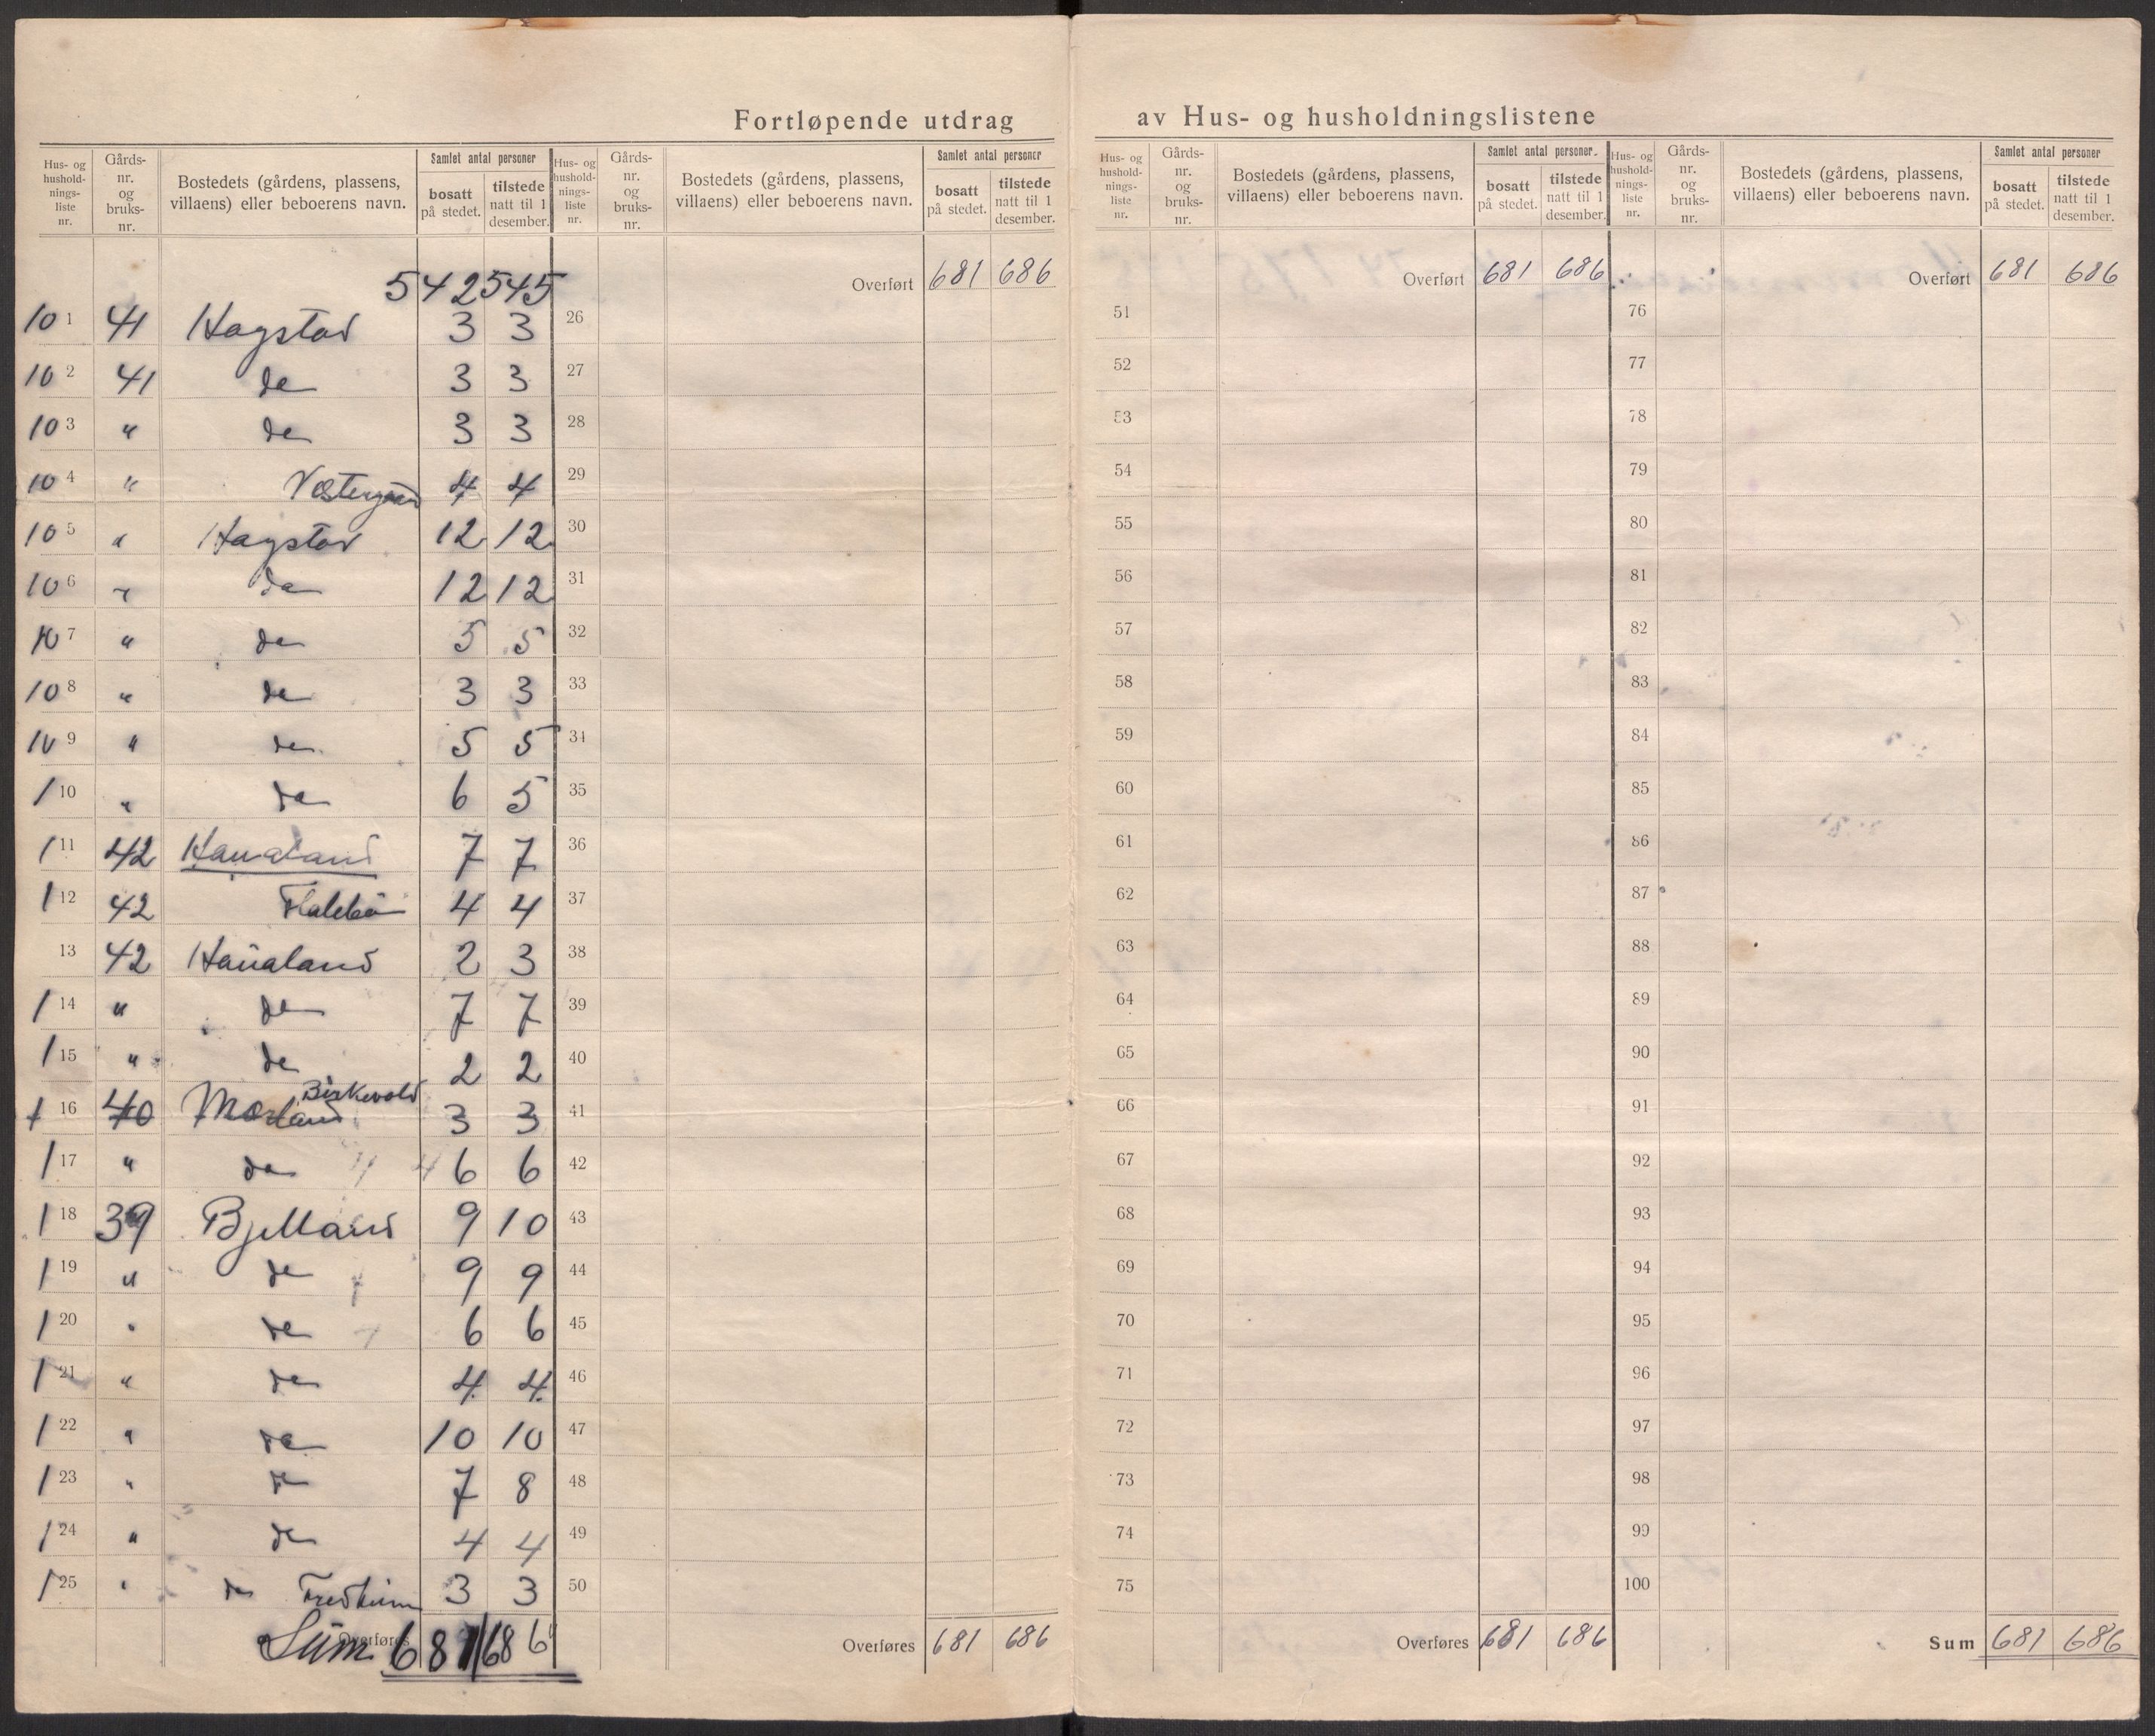 Fortløpende utdrag av Hus- og husholdningslistene
Hus- og hushold-nings-liste nr. Gårds-nr. og bruks-nr. Bostedets (gårdens, plassens, villaens) eller beboerens navn. Samlet antal personer bosatt på stedet. tilstede natt til 1 desember.
Hus- og hushold-nings-liste nr. Gårds-nr. og bruks-nr. Bostedets (gårdens, plassens, villaens) eller beboerens navn. Samlet antal personer bosatt på stedet. tilstede natt til 1 desember.
Hus- og hushold-nings-liste nr. Gårds-nr. og bruks-nr. Bostedets (gårdens, plassens, villaens) eller beboerens navn. Samlet antal personer bosatt på stedet. tilstede natt til 1 desember.
Hus- og hushold-nings-liste nr. Gårds-nr. og bruks-nr. Bostedets (gårdens, plassens, villaens) eller beboerens navn. Samlet antal personer bosatt på stedet. tilstede natt til 1 desember.
542 545 Overført 681 686 Overført 681 686 Overført 681 686
10 1 41 Hagstad 3 3 26 51 76
10 2 41 do 3 3 27 52 77
10 3 " do 3 3 28 53 78
10 4 " Vestergaard 4 4 29 54 79
10 5 " Hagstad 12 12 30 55 80
10 6 " do 12 12 31 56 81
10 7 " do 5 5 32 57 82
10 8 " do 3 3 33 58 83
10 9 " do 5 5 34 59 84
1 10 " do 6 5 35 60 85
1 11 42 Haualand 7 7 36 61 86
1 12 42 4 4 37 62 87
13 42 Haualand 2 3 38 63 88
1 14 " do 7 7 39 64 89
1 15 " do 2 2 40 65 90
1 16 40 Mæland Birkevold 3 3 41 66 91
1 17 " do 6 6 42 67 92
1 18 39 Bjelland 9 10 43 68 93
1 19 " do 9 9 44 69 94
1 20 " do 6 6 45 70 95
1 21 " do 4 4 46 71 96
1 22 " do 10 10 47 72 97
1 23 " do 7 8 48 73 98
1 24 " do 4 4 49 74 99
1 25 " do Fredheim 3 3 50 75 100
Sum Overføres 681 686 Overføres 681 686 Overføres 681 686 Sum 681 686